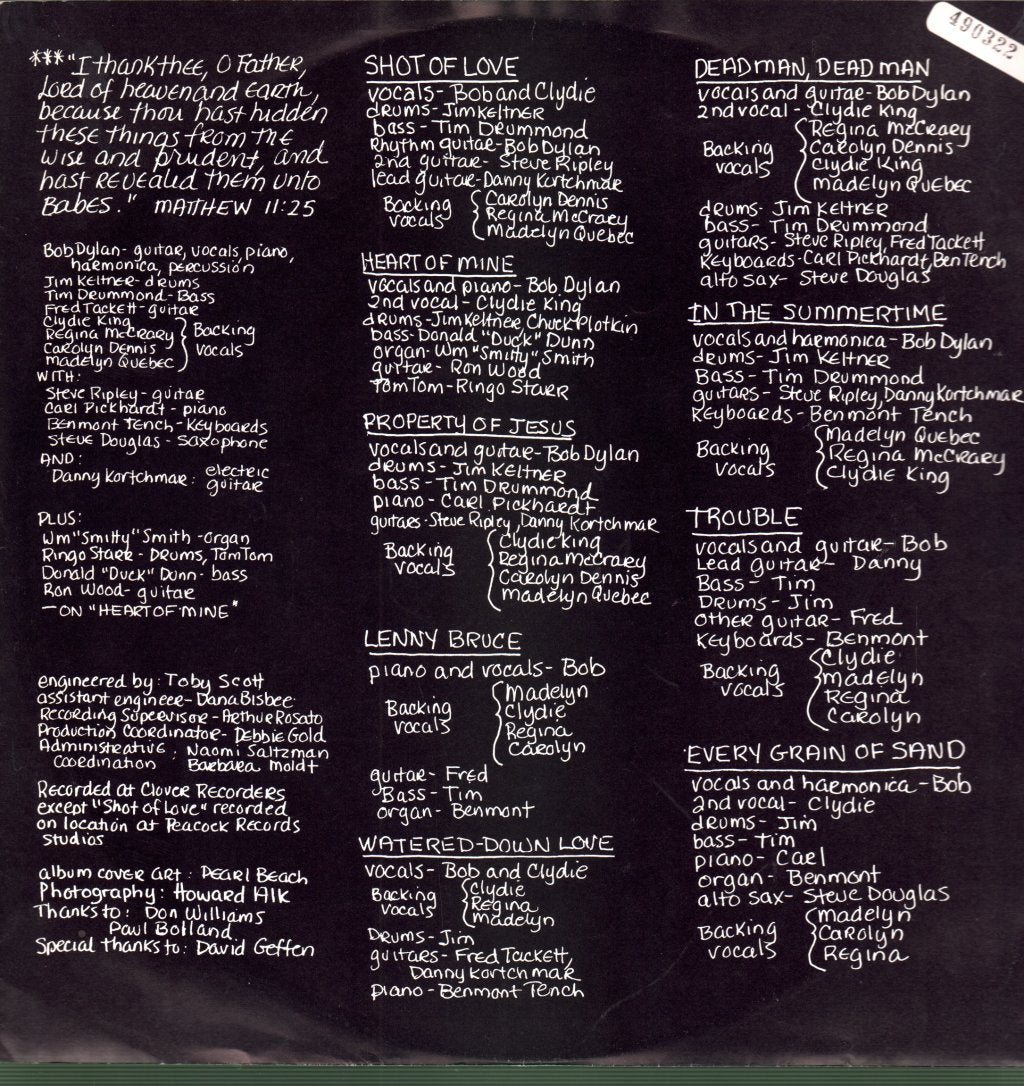 *** "I thank thee, O Father,
Lord of heaven and Earth,
because thou hast hidden
these things from the
wise and prudent, and
hast revealed them unto
Babes." MATTHEW 11:25
Bob Dylan - guitar, vocals, piano,
harmonica, percussion
Jim Keltner - drums
Tim Drummond - Bass
Fred Tackett - guitar
Clydie King
Regina McCrary
Carolyn Dennis
Madelyn Quebec
Backing
vocals
WITH:
Steve Ripley - guitar
Carl Pickhardt - piano
Benmont Tench - Keyboards
Steve Douglas - Saxophone
AND:
Danny Kortchmar: electric
guitar
PLUS:
Wm "Smitty" Smith - organ
Ringo Starr - Drums, TomTom
Donald "Duck" Dunn - bass
Ron Wood - guitar
- ON "HEART OF MINE"
engineered by: Toby Scott
assistant engineer - Dana Bisbee
Recording Supervisor - Arthur Rosato
Production Coordinator - Debbie Gold
Administrative : Naomi Saltzman
Coordination Barbara Moldt
Recorded at Clover Recorders
except "Shot of Love" recorded
on location at Peacock Records
Studios
album cover art: Pearl Beach
Photography: Howard Alk
Thanks to: Don Williams
Paul Bolland
Special thanks to: David Geffen
SHOT OF LOVE
vocals - Bob and Clydie
drums - Jim Keltner
bass - Tim Drummond
Rhythm guitar - Bob Dylan
2nd guitar - Steve Ripley
lead guitar - Danny Kortchmar
Backing
vocals
Carolyn Dennis
Regina McCraey
Madelyn Quebec
HEART OF MINE
vocals and piano - Bob Dylan
2nd vocal - Clydie King
drums - Jim Keltner, Chuck Plotkin
bass - Donald "Duck" Dunn
organ - Wm "Smitty" Smith
guitar - Ron Wood
TomTom - Ringo Starr
PROPERTY OF JESUS
vocals and guitar - Bob Dylan
drums - Jim Keltner
bass - Tim Drummond
piano - Carl Pickhardt
guitars - Steve Ripley, Danny Kortchmar
Backing
vocals
Clydie King
Regina McCrary
Carolyn Dennis
Madelyn Quebec
LENNY BRUCE
piano and vocals - Bob
Backing
vocals
Madelyn
Clydie
Regina
Carolyn
guitar - Fred
Bass - Tim
organ - Benmont
WATERED-DOWN LOVE
vocals - Bob and Clydie
Backing
vocals
Clydie
Regina
Madelyn
Drums - Jim
guitars - Fred Tackett,
Danny Kortchmar
piano - Benmont Tench
490322
DEAD MAN, DEAD MAN
vocals and guitar - Bob Dylan
2nd vocal - Clydie King
Backing
vocals
Regina McCrary
Carolyn Dennis
Clydie King
Madelyn Quebec
drums - Jim Keltner
bass - Tim Drummond
guitars - Steve Ripley, Fred Tackett
Keyboards - Carl Pickhardt, Ben Tench
alto sax - Steve Douglas
IN THE SUMMERTIME
vocals and harmonica - Bob Dylan
drums - Jim Keltner
Bass - Tim Drummond
guitars - Steve Ripley, Danny Kortchmar
Keyboards - Benmont Tench
Backing
vocals
Madelyn Quebec
Regina McCrary
Clydie King
TROUBLE
vocals and guitar - Bob
Lead guitar - Danny
Bass - Tim
Drums - Jim
other guitar - Fred
Keyboards - Benmont
Backing
vocals
Clydie
Madelyn
Regina
Carolyn
EVERY GRAIN OF SAND
vocals and harmonica - Bob
2nd vocal - Clydie
drums - Jim
bass - Tim
piano - Carl
organ - Benmont
alto sax - Steve Douglas
Backing
vocals
Madelyn
Carolyn
Regina